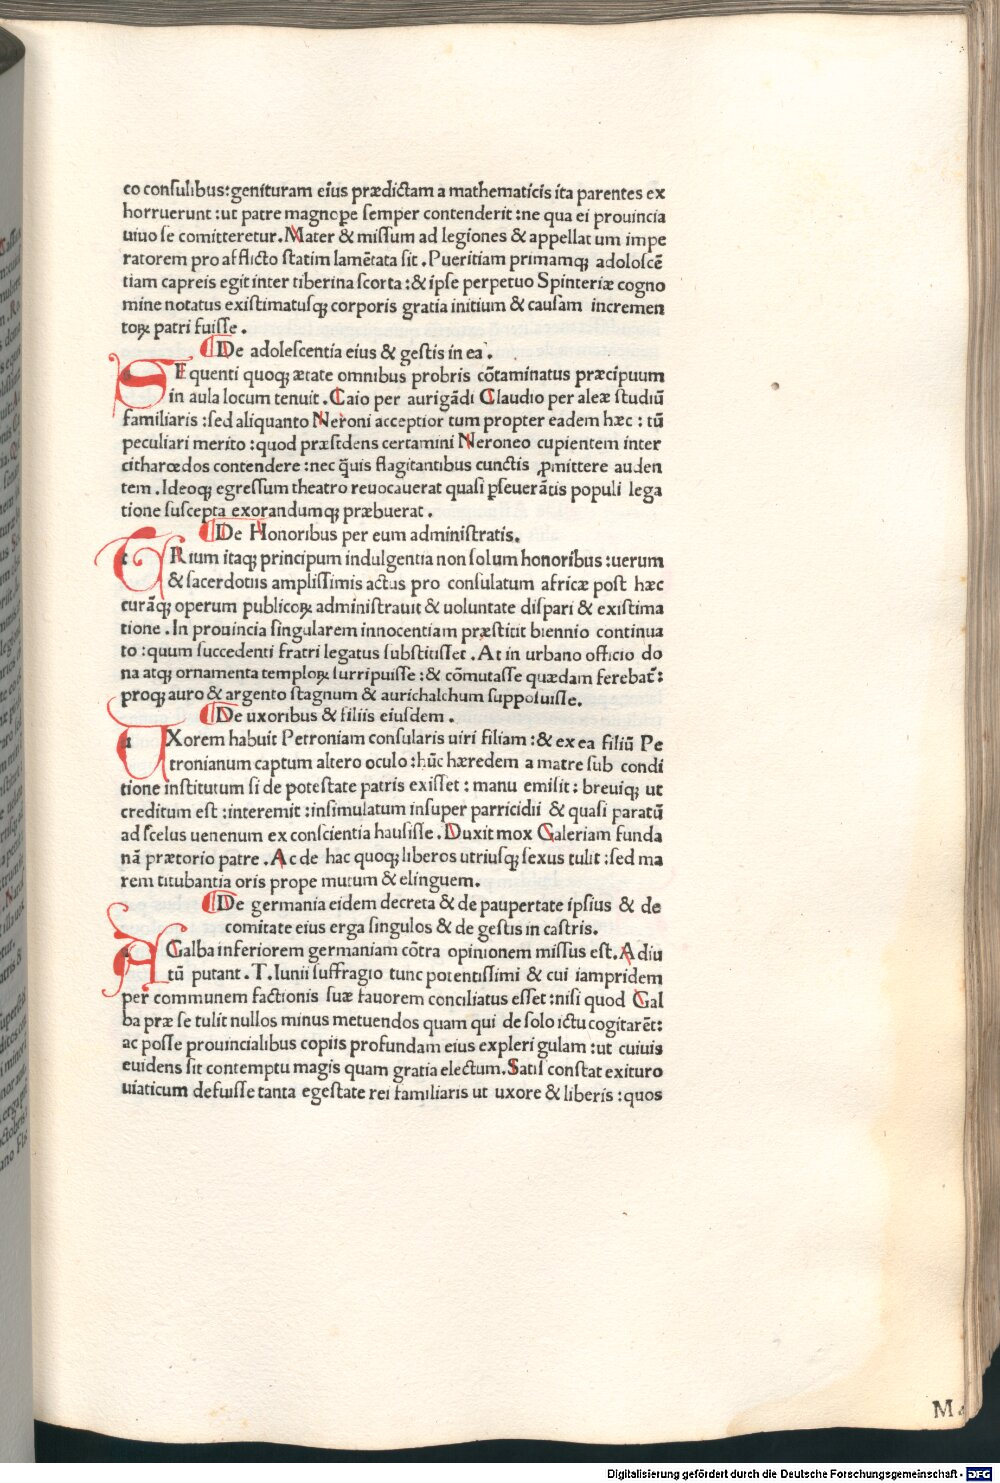 co conſulibus:genituram eius prædictam a mathematicis ita parentes ex
horruerunt :ut patre magnope ſemper contenderit :ne qua ei prouincia
uiuo ſe comitteretur. Mater & miſſum ad legiones & appellatum impe
ratorem pro afflicto ſtatim lamētata ſit . Pueritiam primamqꝫ adoloſcē
tiam capreis egit inter tiberina ſcorta :& ipſe perpetuo Spinteriæ cogno
mine notatus exiſtimatuſqꝫ corporis gratia initium & cauſam incremen
toꝝ patri fuiſſe .
De adoleſcentia eius & geſtis in ea .
SEquenti quoqꝫ ætate omnibus probris cōtaminatus præcipuum
in aula locum tenuit . Caio per aurigādi Claudio per aleæ ſtudiū
familiaris :ſed aliquanto Neroni acceptior tum propter eadem hæc : tū
peculiari merito :quod præſidens certamini Neroneo cupientem inter
citharœdos contendere :nec q̄uis flagitantibus cunctis ꝓmittere auden
tem .Ideoqꝫ egreſſum theatro reuocauerat quaſi pſeuerātis populi lega
tione ſuſcepta exorandumqꝫ præbuerat .
De Honoribus per eum adminiſtratis.
TRium itaqꝫ principum indulgentia non ſolum honoribus :uerum
& ſacerdotiis ampliſſimis actus pro conſulatum africæ poſt hæc
curāqꝫ operum publicoꝝ adminiſtrauit & uoluntate diſpari & exiſtima
tione . In prouincia ſingularem innocentiam præſtitit biennio continua
to :quum ſuccedenti fratri legatus ſubſtitiſſet . At in urbano officio do
na atqꝫ ornamenta temploꝝ ſurripuiſſe :& cōmutaſſe quædam ferebat̄:
proqꝫ auro & argento ſtagnum & aurichalchum ſuppoſuiſſe.
De uxoribus & filiis eiuſdem .
UXorem habuit Petroniam conſularis uiri filiam :& ex ea filiū Pe
tronianum captum altero oculo :hūc hæredem a matre ſub condi
tione inſtitutum ſi de poteſtate patris exiſſet : manu emiſit : breuiqꝫ ut
creditum eſt :interemit :inſimulatum inſuper parricidii & quaſi paratū
ad ſcelus uenenum ex conſcientia hauſiſſe . Duxit mox Galeriam funda
nā prætorio patre . Ac de hac quoqꝫ liberos utriuſqꝫ ſexus tulit :ſed ma
rem titubantia oris prope mutum & elinguem.
De germania eidem decreta & de paupertate ipſius & de
comitate eius erga ſingulos & de geſtis in caſtris.
A Galba inferiorem germaniam cōtra opinionem miſſus eſt. Adiu
tū putant . T. Iunii ſuffragio tunc potentiſſimi & cui iampridem
per communem factionis ſuæ fauorem conciliatus eſſet :niſi quod Gal
ba præ ſe tulit nullos minus metuendos quam qui de ſolo ictu cogitarēt:
ac poſſe prouincialibus copiis profundam eius expleri gulam :ut cuiuis
euidens ſit contemptu magis quam gratia electum. Satiſ conſtat exituro
uiaticum defuiſſe tanta egeſtate rei familiaris ut uxore & liberis :quos
M
Digitalisierung gefördert durch die Deutsche Forschungsgemeinschaft - DFG